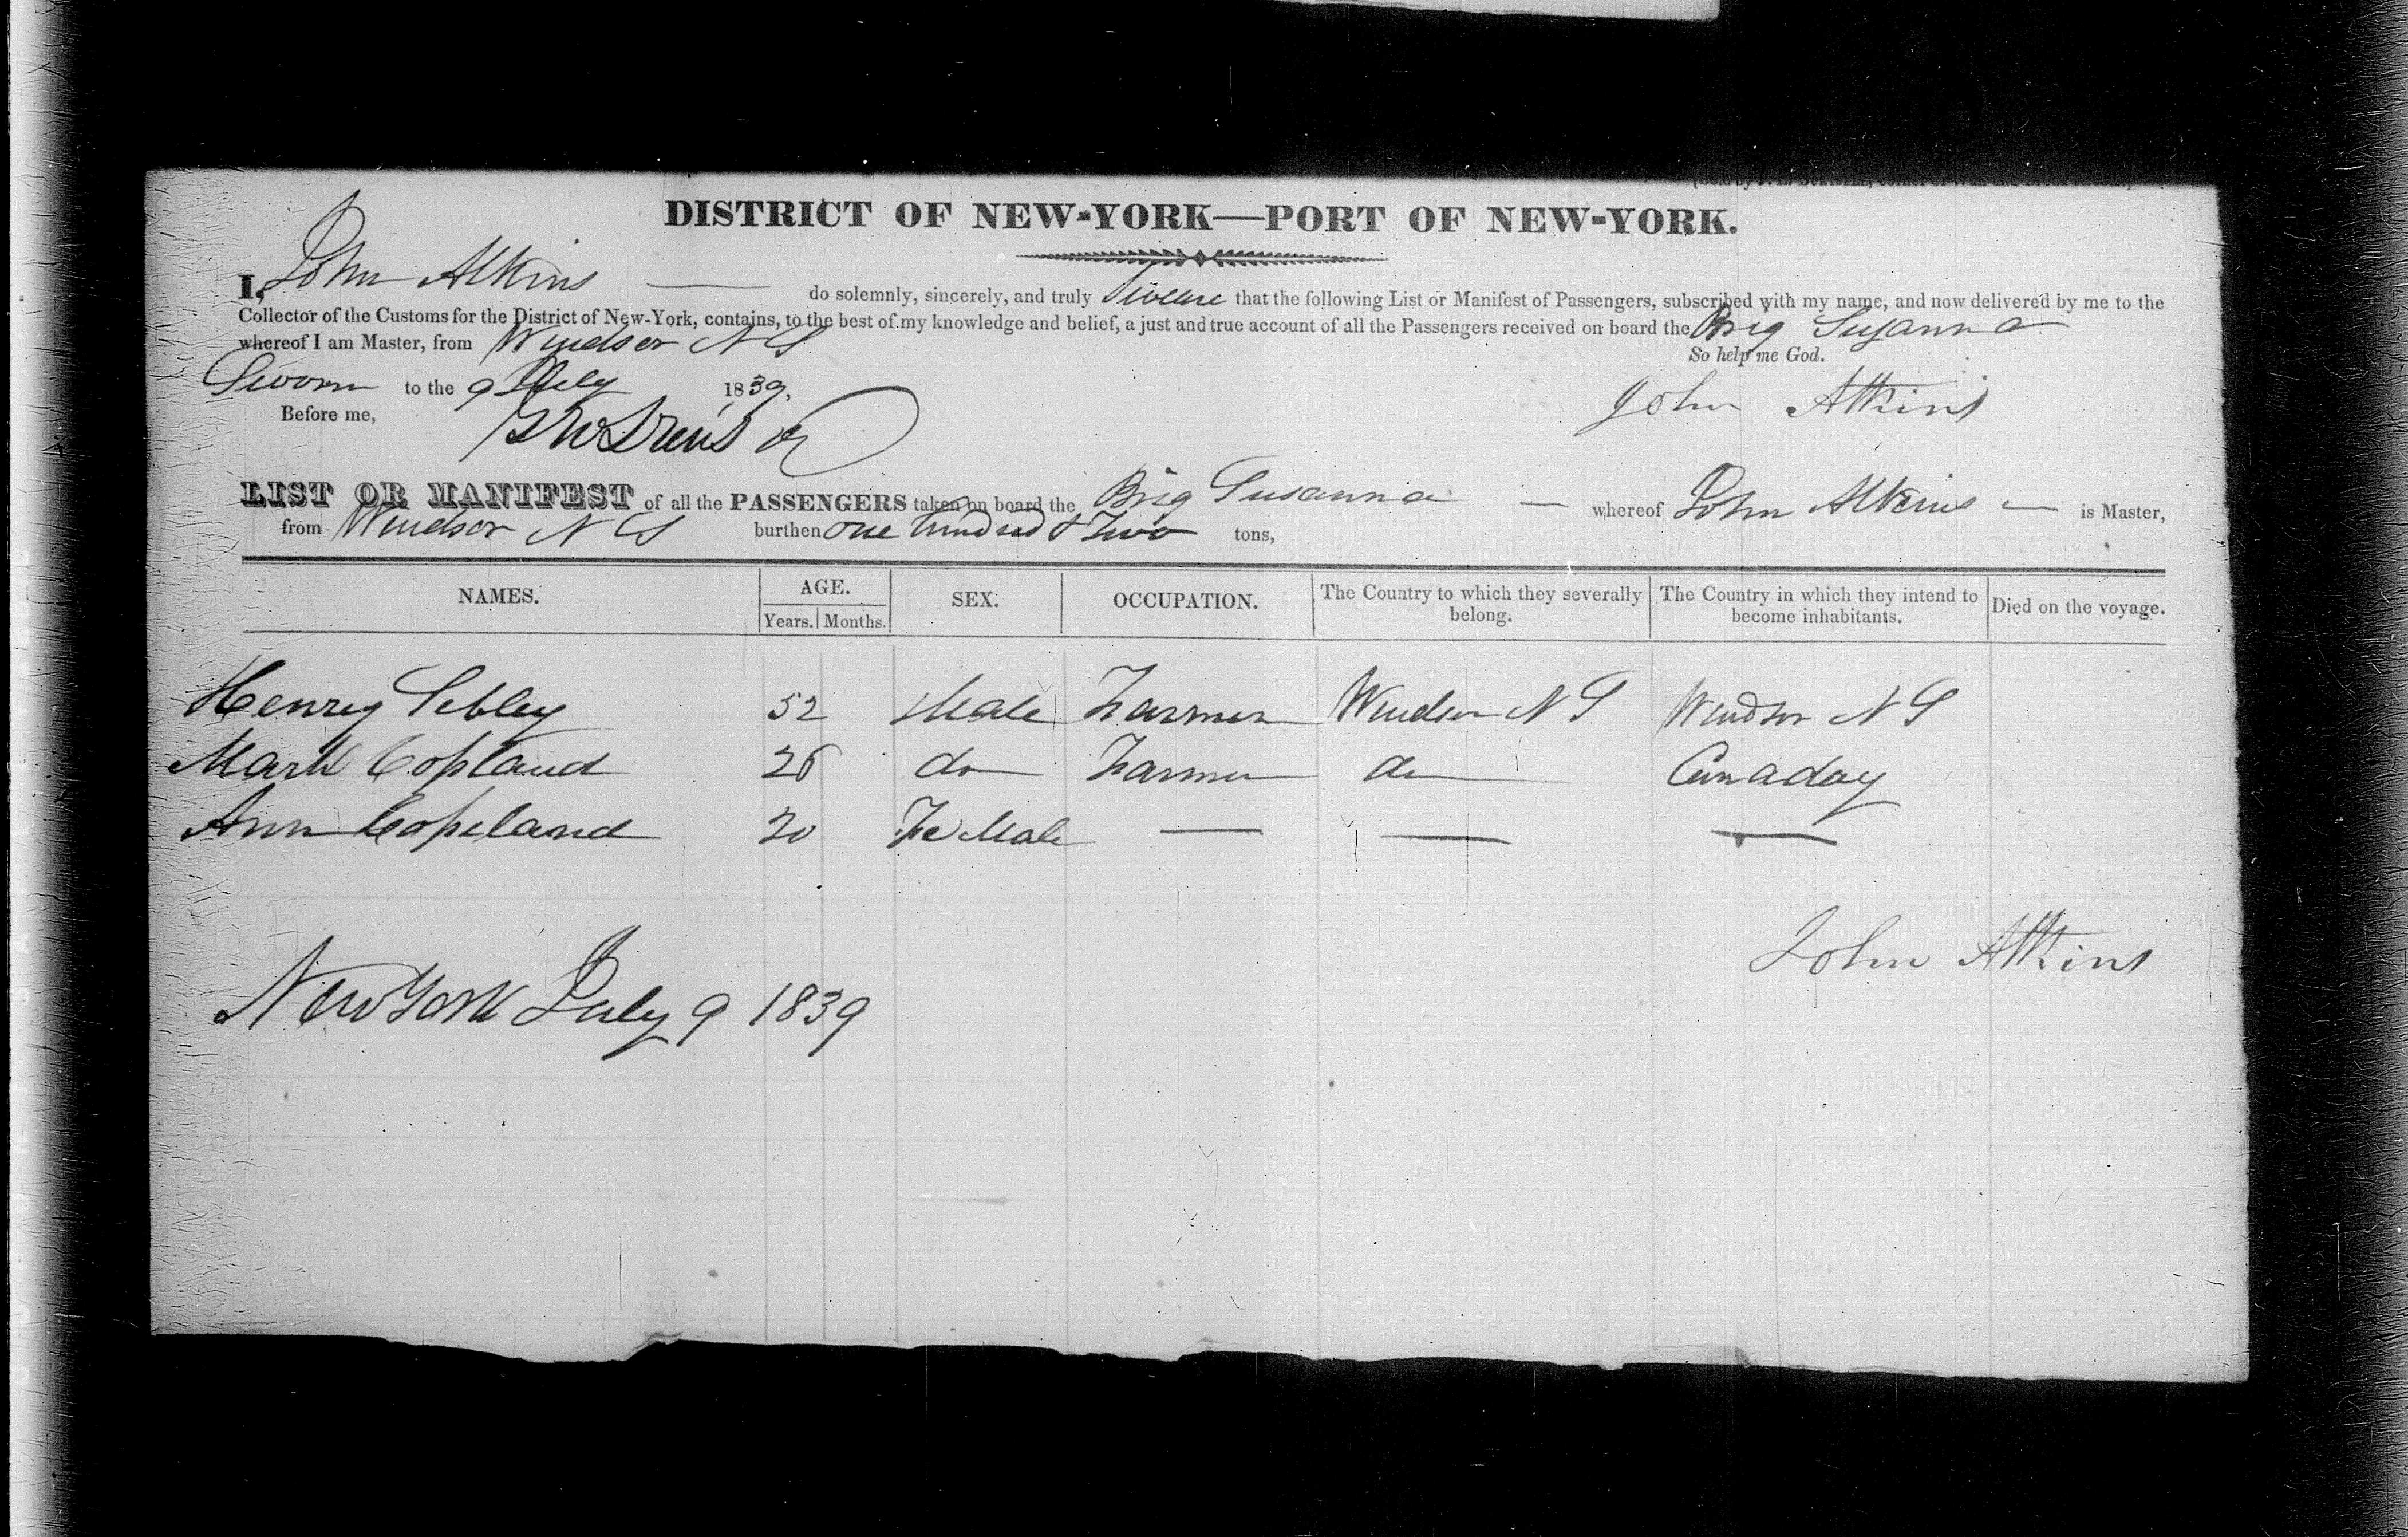 DISTRICT OF NEW-YORK—PORT OF NEW-YORK.
I, John Atkins — do solemnly, sincerely, and truly Sweare that the following List or Manifest of Passengers, subscribed with my name, and now delivered by me to the
Collector of the Customs for the District of New-York, contains, to the best of my knowledge and belief, a just and true account of all the Passengers received on board the Brig Susanna
whereof I am Master, from Windsor N S
So help me God.
Sworn to the 9 July 1839.
John Atkins
Before me,
LIST OR MANIFEST of all the PASSENGERS taken on board the Brig Susanna — whereof John Atkins — is Master,
from Windsor N S burthen one hundred & Two tons,
NAMES. AGE. Years. Months. SEX. OCCUPATION. The Country to which they severally belong. The Country in which they intend to become inhabitants. Died on the voyage.
Henry Sibley 52 Male Farmer Windsor N S Windsor N S
Mark Copland 26 do Farmer do Canaday
Ann Copeland 20 Fe Male — — —
John Atkins
New York July 9 1839